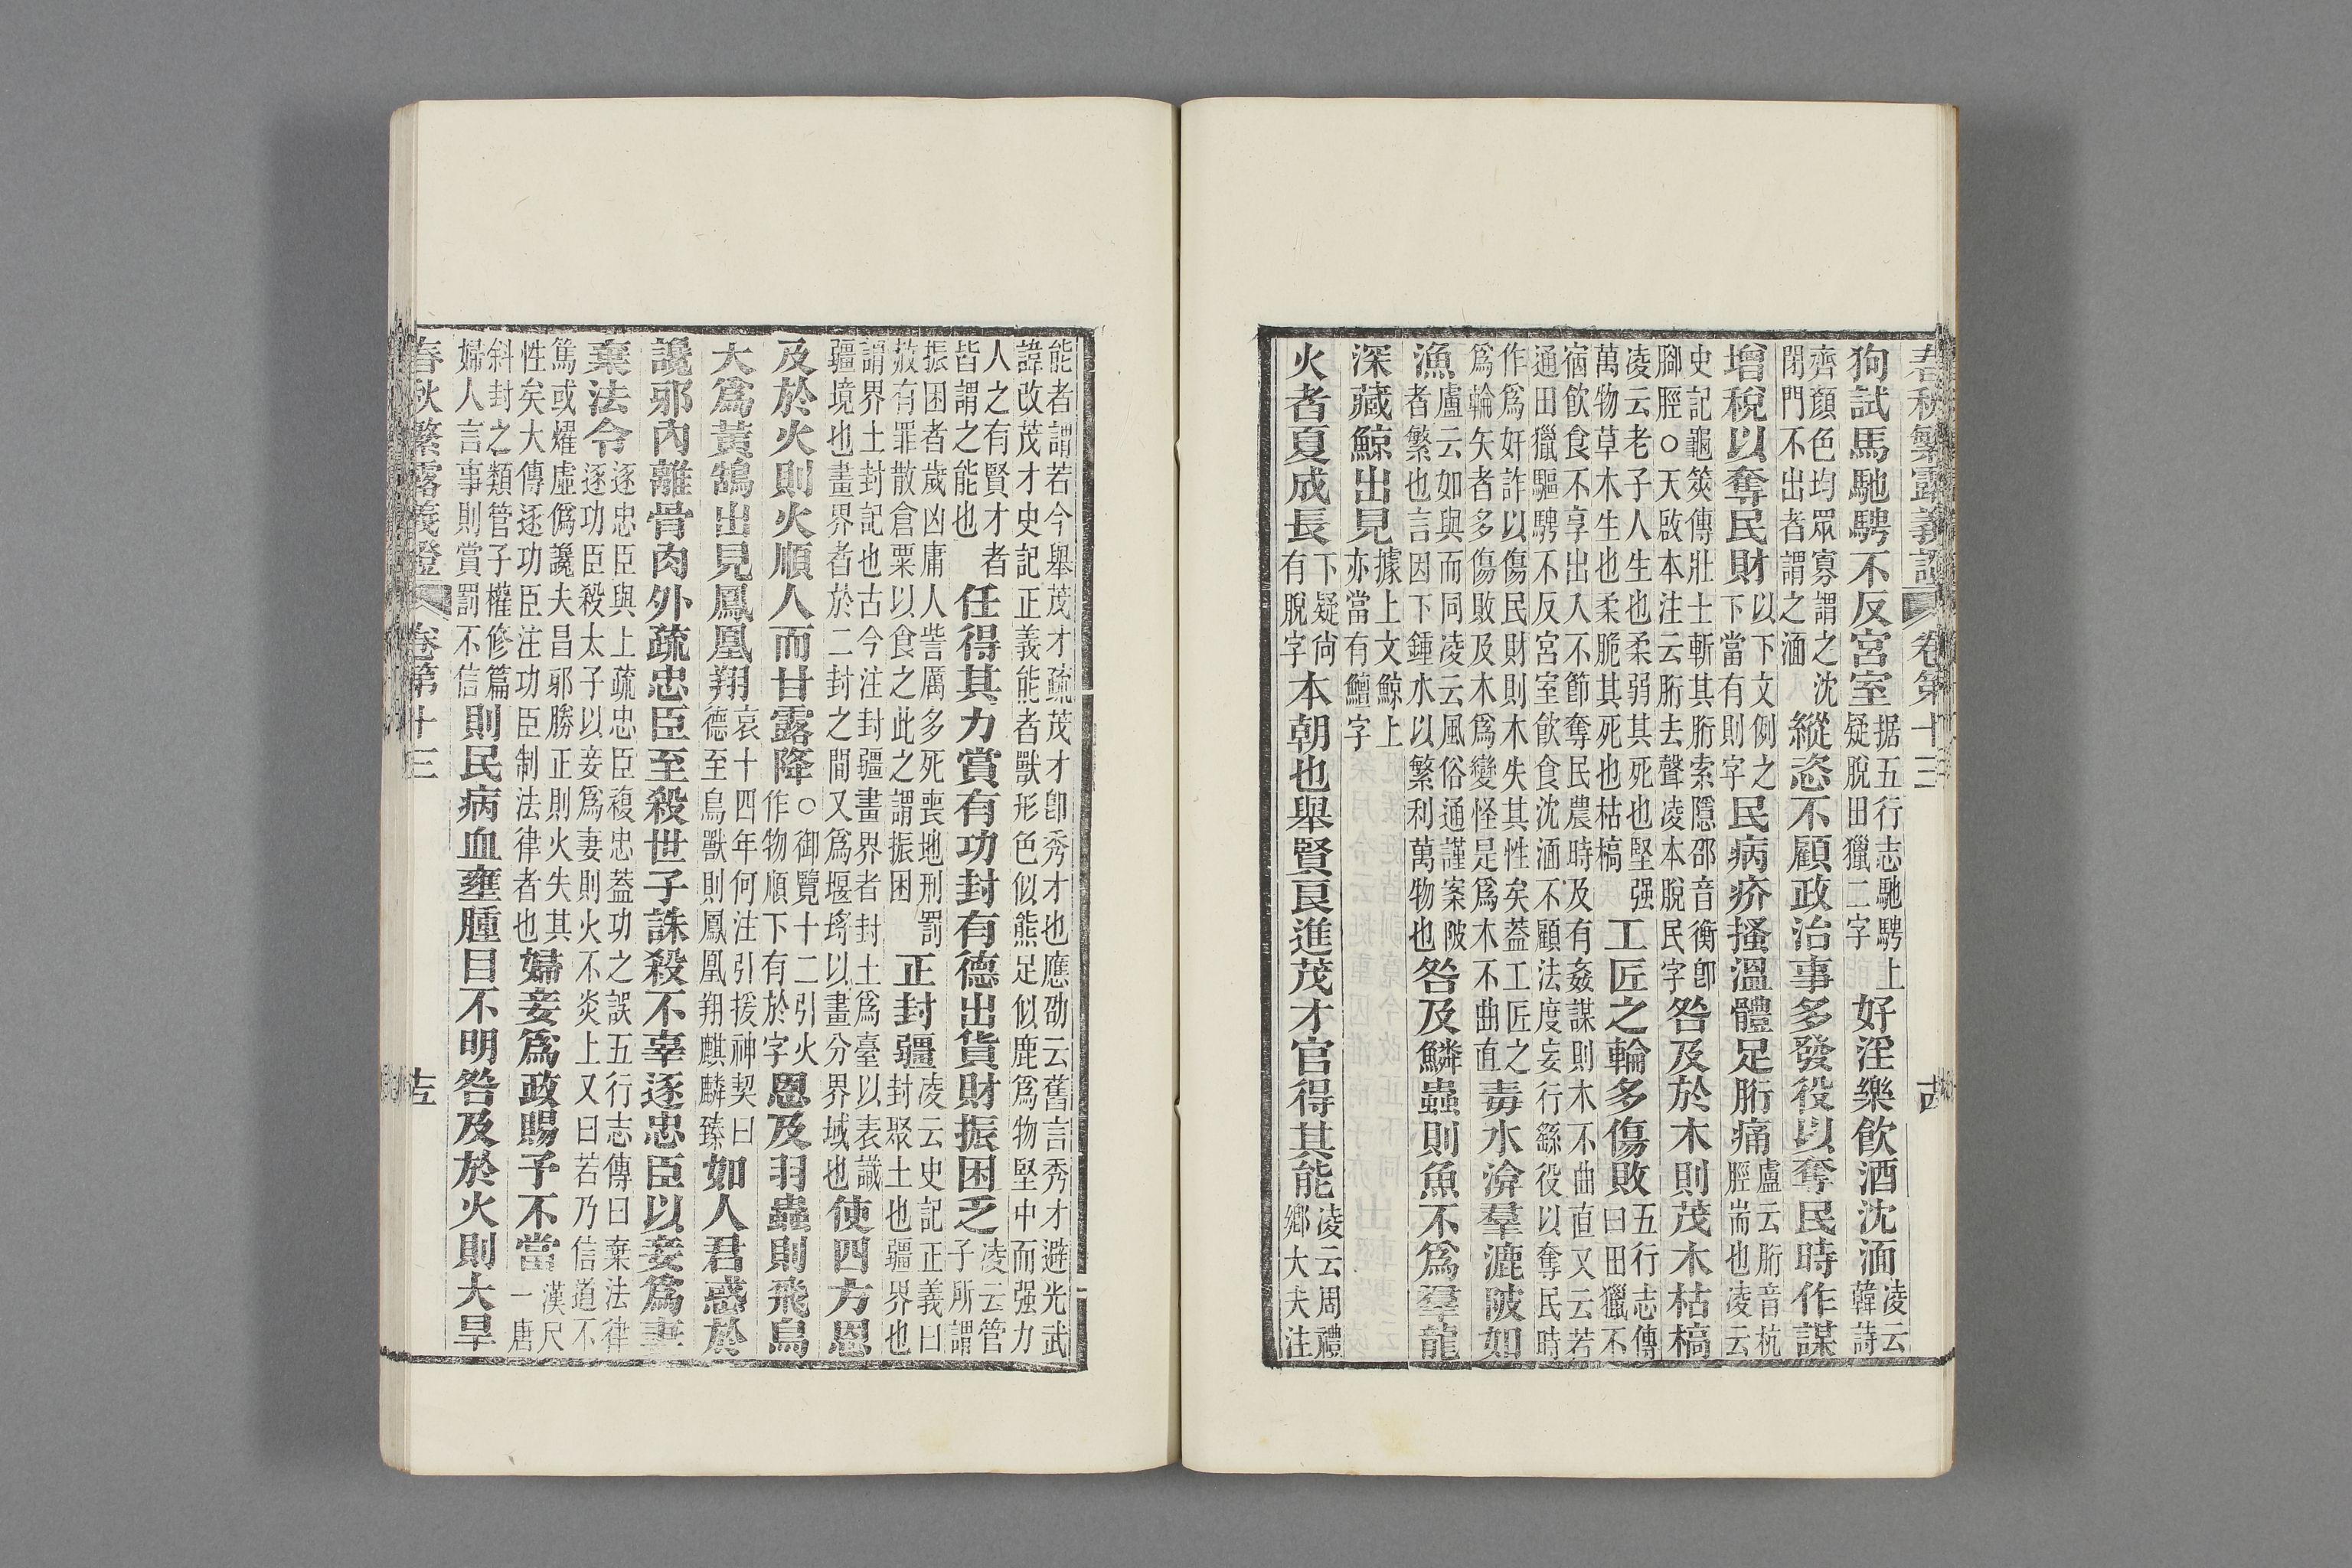 春秋繁露義證 卷第十三 十四
狗試馬馳騁不反宮室据五行志馳騁上疑脫田獵二字好淫樂飲酒沈湎凌云韓詩
齊顏色均眾寡謂之沈閉門不出者謂之湎縱恣不顧政治事多發役以奪民時作謀
增稅以奪民財以下文例之下當有則字民病疥搔溫體足胻痛盧云胻音杭脛耑也凌云
史記龜筴傳壯士斬其胻索隱邵音衡卽脚脛○天啟本注云胻去聲凌本脫民字咎及於木則茂木枯槁
凌云老子人生也柔弱其死也堅强萬物草木生也柔脆其死也枯槁工匠之輪多傷敗五行志傳曰田獵不
宿飲食不享出入不節奪民農時及有姦謀則木不曲直又云若通田獵驅騁不反宮室飲食沈湎不顧法度妄行繇役以奪民時
作爲奸詐以傷民財則木失其性矣蓋工匠之爲輪矢者多傷敗及木爲變怪是爲木不曲直毒水渰羣漉陂如
漁盧云如與而同凌云風俗通謹案陂者繁也言因下鍾水以繁利萬物也咎及鱗蟲則魚不爲羣龍
深藏鯨出見據上文鯨上亦當有鱣字
火者夏成長下疑尙有脫字本朝也舉賢良進茂才官得其能凌云周禮鄉大夫注
能者謂若今舉茂才疏茂才卽秀才也應劭云舊言秀才避光武諱改茂才史記正義能者獸形色似熊足似鹿爲物堅中而强力
人之有賢才者皆謂之能也任得其力賞有功封有德出貨財振困乏凌云管子所謂
振困者歲凶庸人訾厲多死喪地刑罰赦有罪散倉粟以食之此之謂振困正封疆凌云史記正義曰封聚土也疆界也
謂界土封記也古今注封疆畫界者封土爲臺以表識疆境也畫界者於二封之間又爲堰埒以畫分界域也使四方恩
及於火則火順人而甘露降○御覽十二引火作物順下有於字恩及羽蟲則飛鳥
大爲黃鵠出見鳳凰翔哀十四年何注引援神契曰德至鳥獸則鳳凰翔麒麟臻如人君惑於
讒邪內離骨肉外疏忠臣至殺世子誅殺不辜逐忠臣以妾爲妻
棄法令逐忠臣與上疏忠臣複忠蓋功之誤五行志傳曰棄法律逐功臣殺太子以妾爲妻則火不炎上又曰若乃信道不
篤或燿虛僞讒夫昌邪勝正則火失其性矣大傳逐功臣注功臣制法律者也婦妾爲政賜予不當漢尺一唐
斜封之類管子權修篇婦人言事則賞罰不信則民病血壅腫目不明咎及於火則大旱
春秋繁露義證 卷第十三 十五